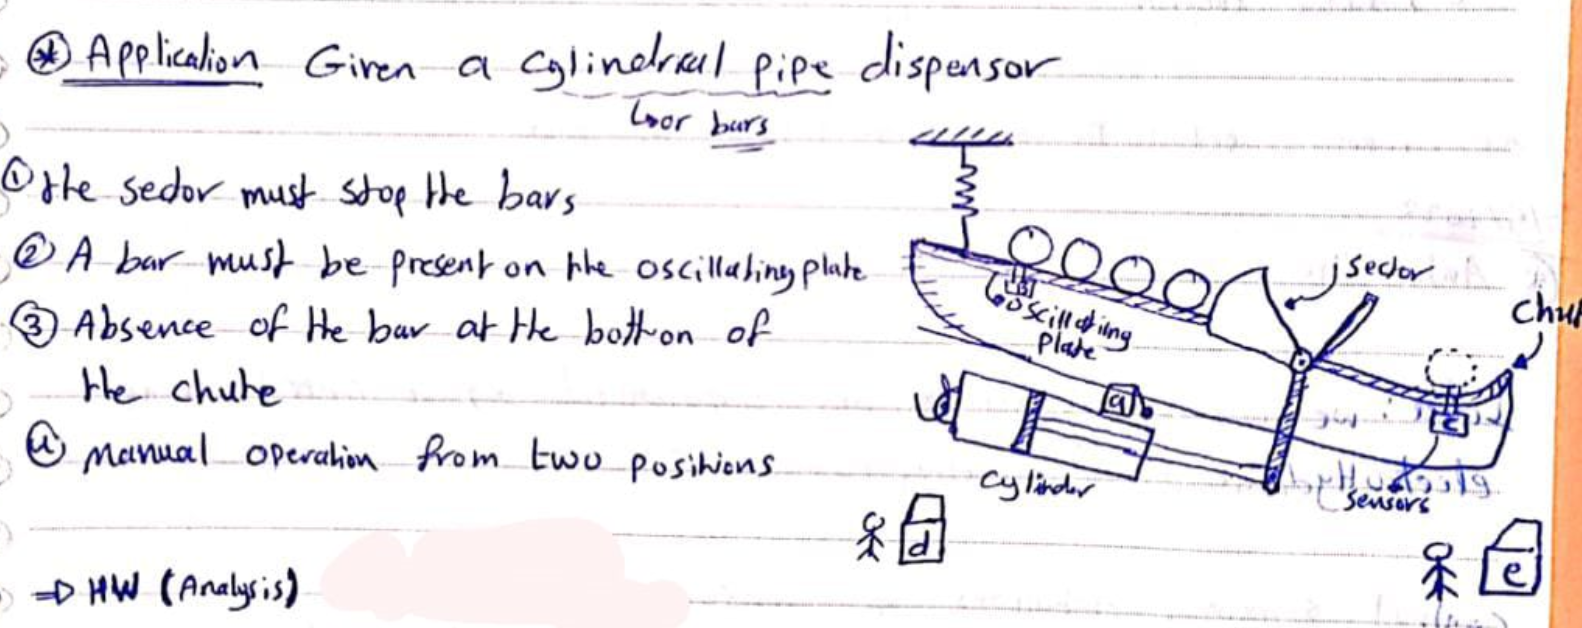 ⊛ Application Given a cylindrical pipe dispensor
↳ or bars
① the sector must stop the bars
② A bar must be present on the oscillating plate
③ Absence of the bar at the bottom of
the chute
④ manual operation from two positions
⇒ HW (Analysis)
sector
Chut
b
oscillating
plate
a
c
cylinder
sensors
d
e